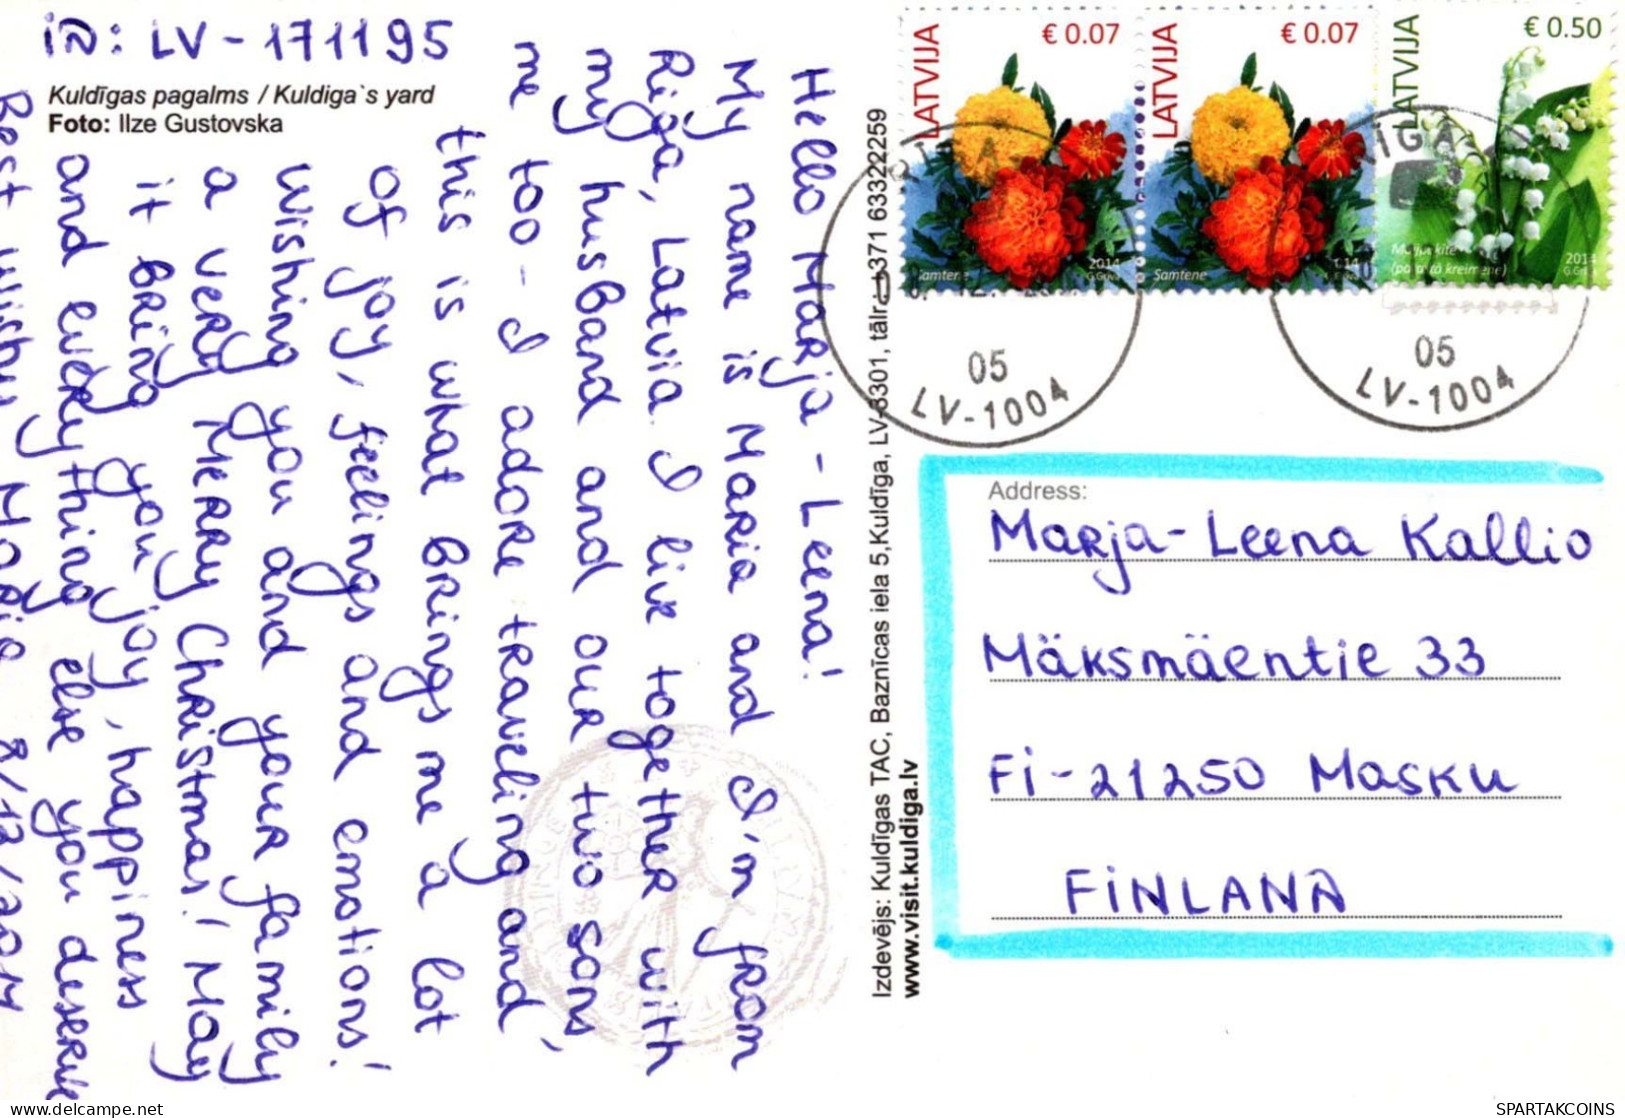 iD: LV - 171195
Kuldīgas pagalms / Kuldiga`s yard
Foto: Ilze Gustovska
Hello Marja - Leena!
My name is Maria and I'm from
Riga, Latvia. I live together with
my husband and our two sons,
me too - I adore traveling and
this is what brings me a lot
of joy, feelings and emotions!
Wishing you and your family
a very Merry Christmas! May
it bring you joy, happiness
and everything else you deserve
Best wishes Maria 8/12/2014
Izdevējs: Kuldīgas TAC, Baznīcas iela 5,Kuldīga, LV-3301, tālr. +371 63322259
www.visit.kuldiga.lv
LATVIJA
€ 0.07
Samtene
2014
G.Gūva
LATVIJA
€ 0.07
Samtene
LATVIJA
€ 0.50
2014
RĪGA
05
LV-1004
RĪGA
05
LV-1004
Address:
Marja-Leena Kallio
Mäksmäentie 33
Fi-21250 Masku
FiNLAND
SPARTAKCOINS